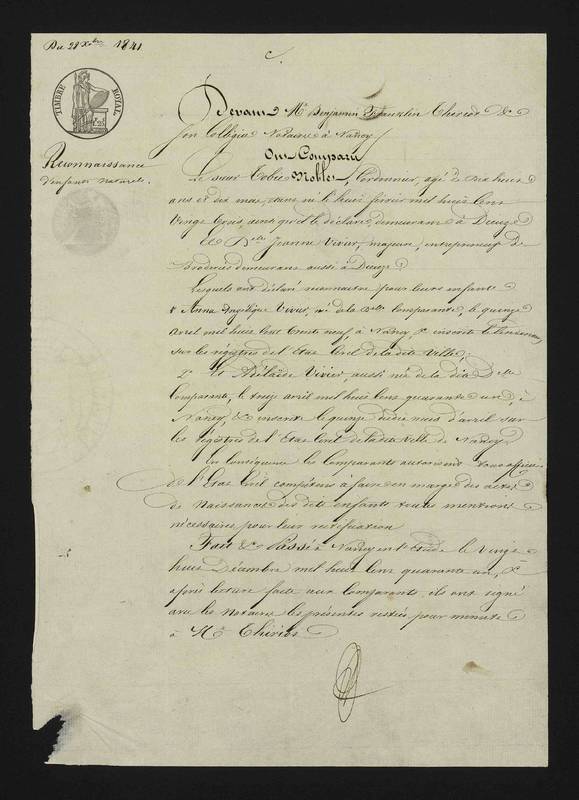 Du 28 Xbre 1841
TIMBRE ROYAL
Reconnaissance
d'enfants naturels.
Devant Me Benjamin Thiriot &
son Collègue Notaires à Nancy
Ont Comparu
Le sieur Tobie Nobles, Cordonnier, agé de dix huit
ans et dix mois, étant né le huit février mil huit cent
vingt trois, ainsi qu'il le déclare, demeurant à Dieuze
Et Dlle Jeanne Vivier, majeure, entrepreneur de
broderies demeurant aussi à Dieuze
Lesquels ont déclaré reconnaitre pour leurs enfants
Anna Angélique Vivier, née de la Dlle comparante, le quinze
avril mil huit cent trente neuf, à Nancy, & inscrite le lendemain
sur les régistres de l'Etat Civil de la dite Ville;
2° Et Adélaïde Vivier, aussi née de la dite Dlle
Comparante, le treize avril mil huit cent quarante un, à
Nancy, & inscrite le quinze dudit mois d'avril sur
les régistres de l'Etat Civil de ladite Ville de Nancy
En conséquence les Comparants autorisent tous officiers
de l'Etat Civil compétens à faire en marge des actes
de Naissance des dits enfants toutes mentions
nécessaires pour leur rectification
Fait & Passé à Nancy en l'Etude le Vingt
huit Décembre mil huit cent quarante un, &
après lecture faite aux Comparants, ils ont signé
avec les Notaires les présentes restées pour minute
à Me Thiriot